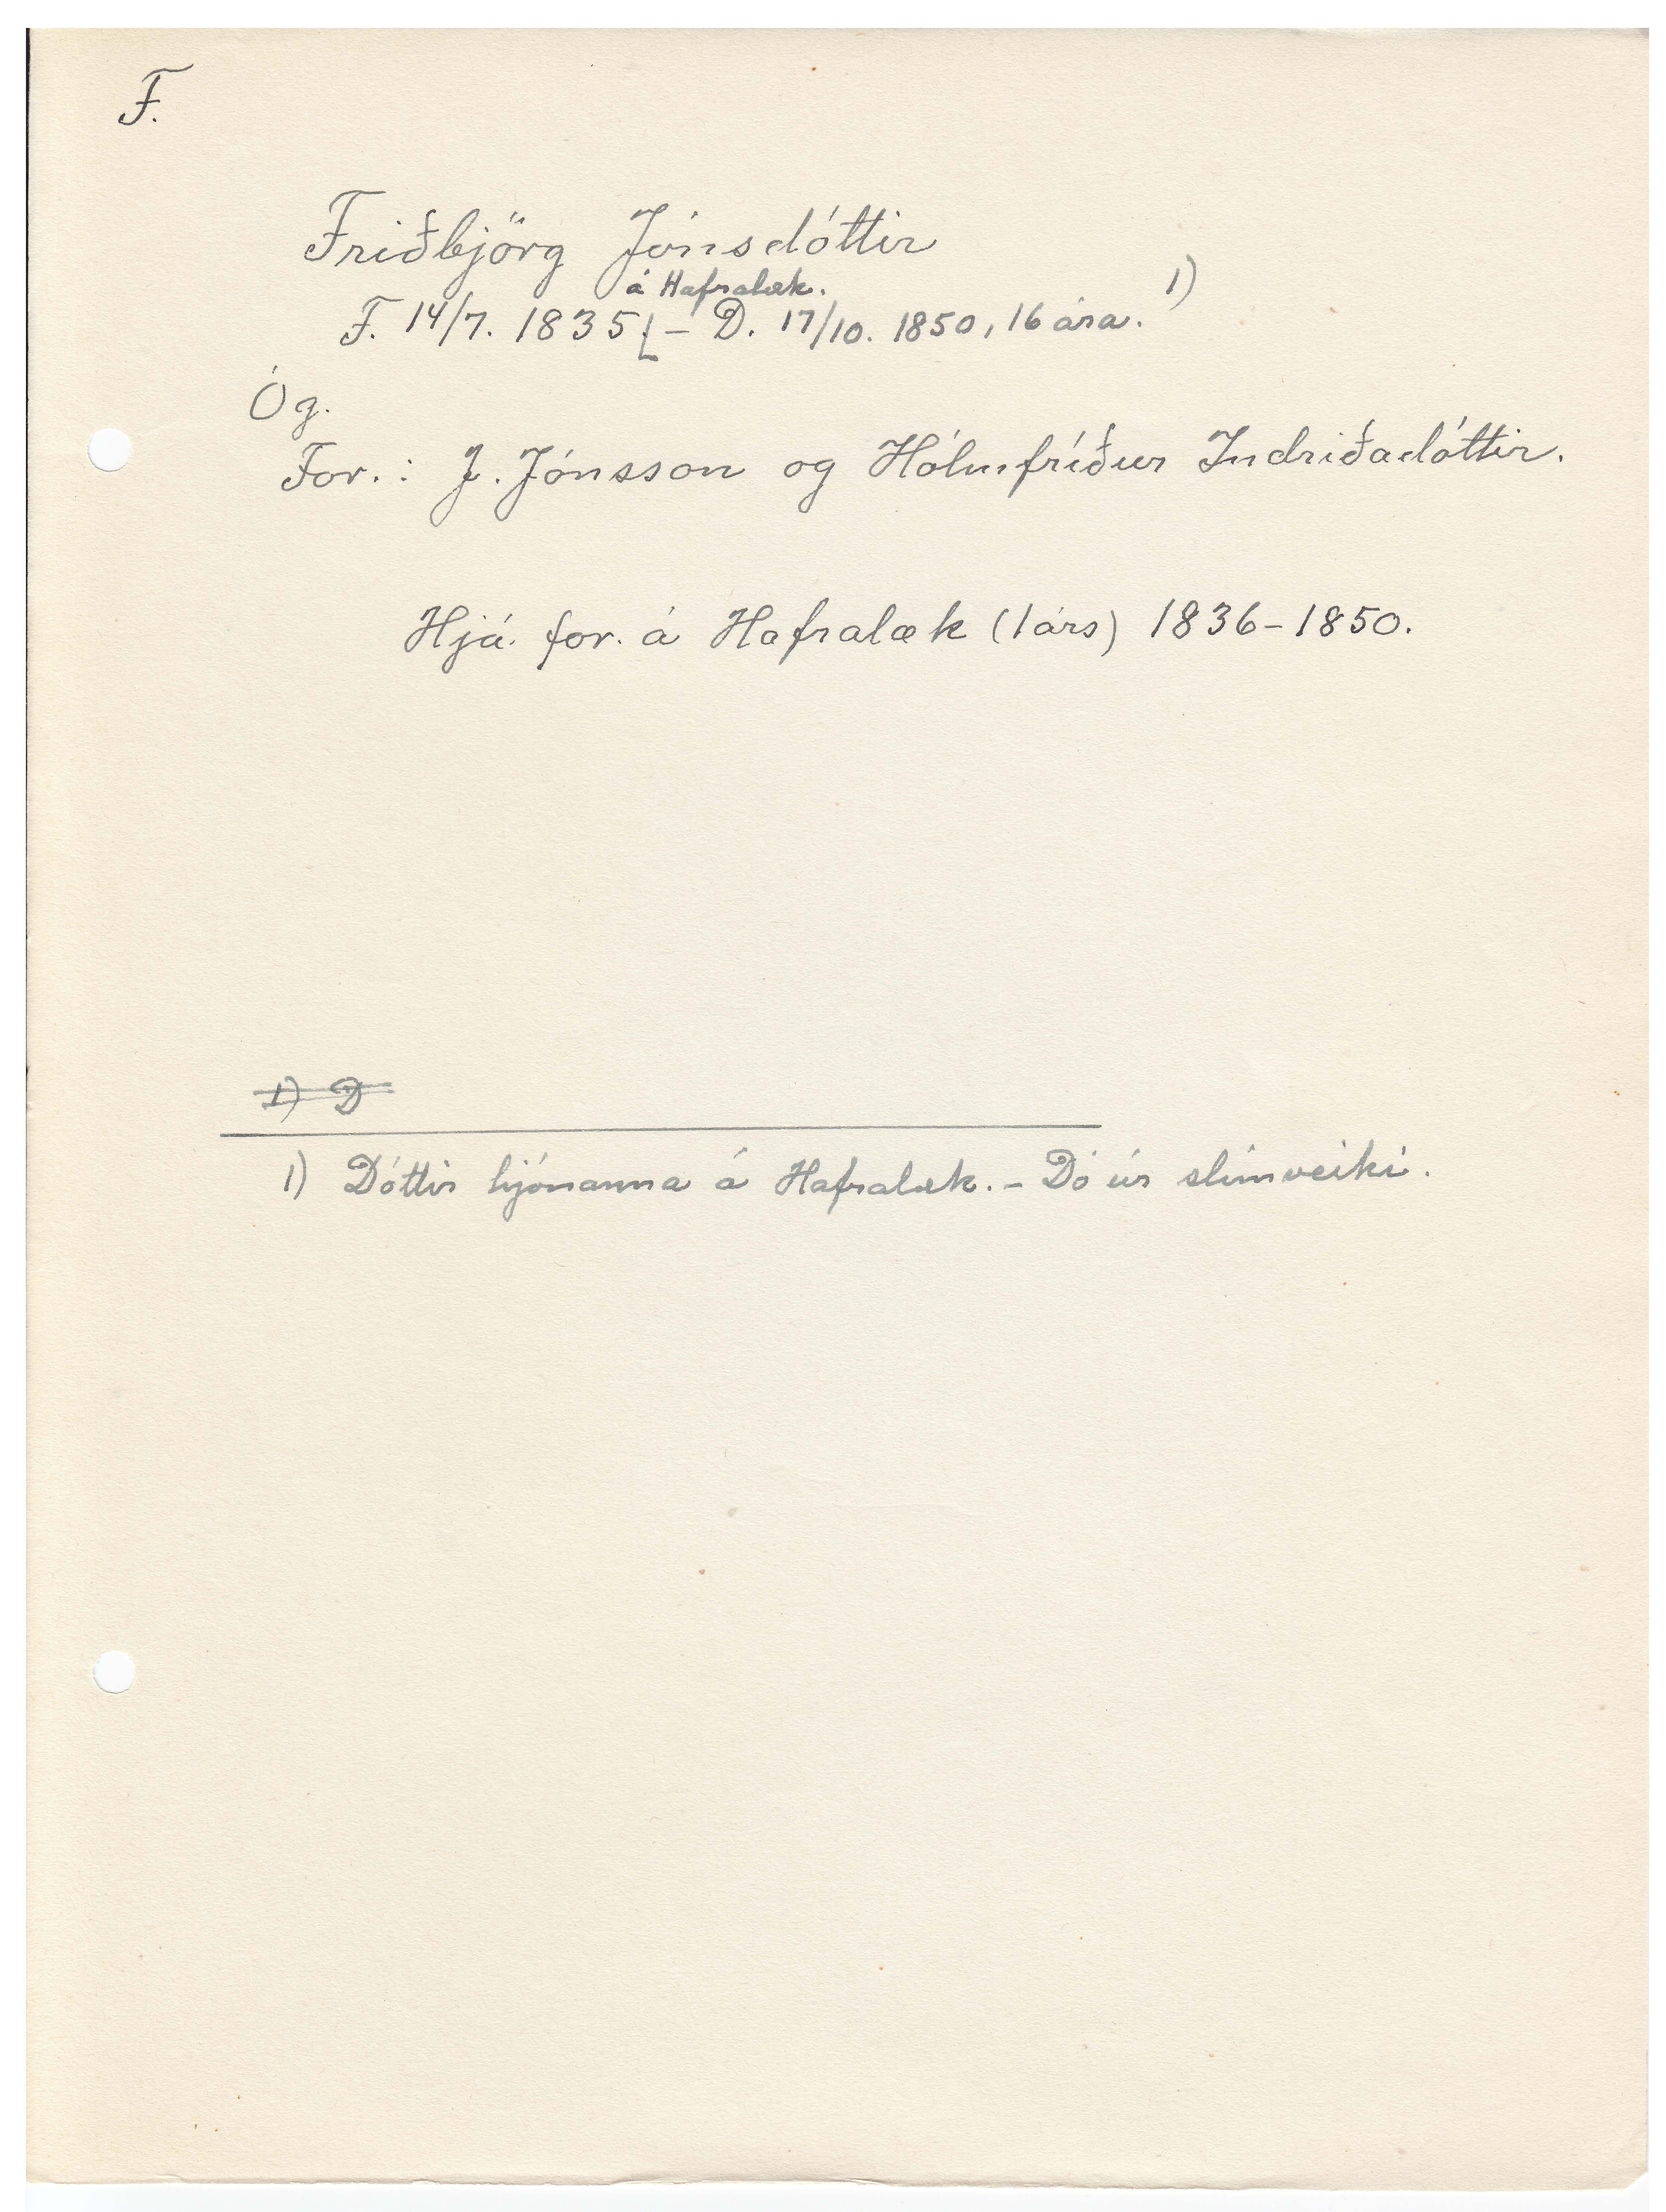 F.
Friðbjörg Jónsdóttir
á Hafralæk.
F. 14/7. 1835. - D. 17/10. 1850, 16 ára. 1)
Óg.
For.: J. Jónsson og Hólmfríður Indriðadóttir.
Hjá for. á Hafralæk (1 árs) 1836-1850.
1) D
1) Dóttir hjónanna á Hafralæk. - Dó úr slímveiki.